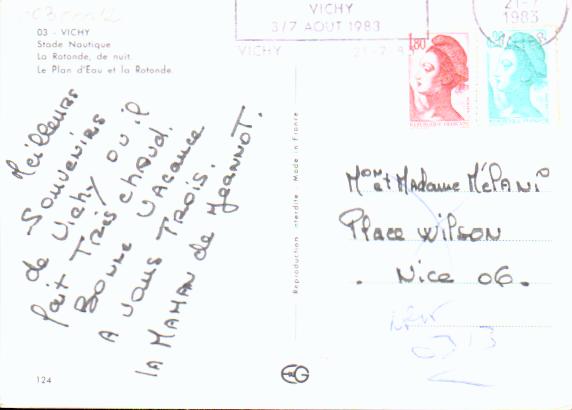 03 - VICHY
Stade Nautique
La Rotonde, de nuit.
Le Plan d'Eau et la Rotonde.
VICHY
3/7 AOUT 1983
VICHY
21-7
1983
1,80
Meilleurs
Souvenirs
de Vichy ou il
fait très chaud.
Bonne vacance
a vous trois.
la Maman de Jeannot.
Reproduction interdite Made in France
Mon et Madame Mépani
Place Wilson
. Nice 06 .
124